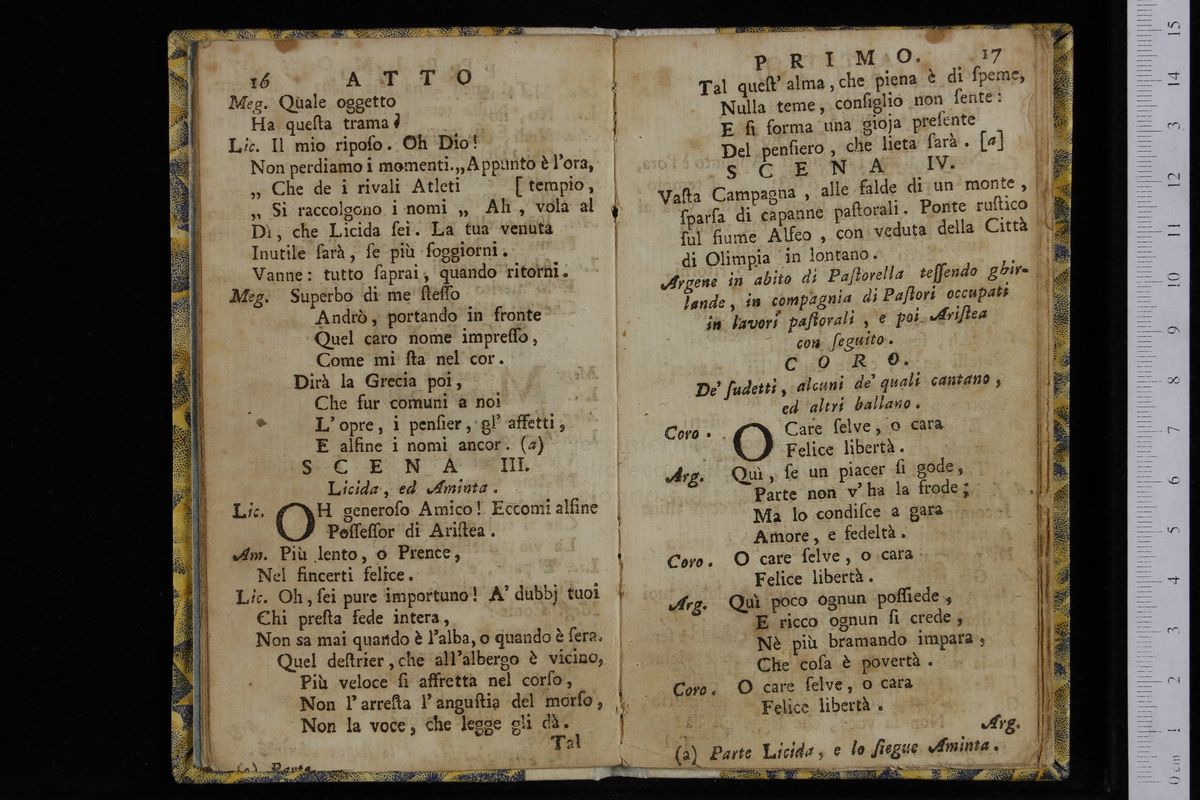 16 ATTO
Meg. Quale oggetto
Ha queſta trama?
Lic. Il mio ripoſo. Oh Dio!
Non perdiamo i momenti. „ Appunto è l'ora,
„ Che de i rivali Atleti [tempio,
„ Si raccolgono i nomi „ Ah, vola al
Dì, che Licida ſei. La tua venuta
Inutile ſarà, ſe più ſoggiorni.
Vanne: tutto ſaprai, quando ritorni.
Meg. Superbo di me ſteſſo
Andrò, portando in fronte
Quel caro nome impreſſo,
Come mi ſta nel cor.
Dirà la Grecia poi,
Che fur comuni a noi
L'opre, i penſier, gl' affetti,
E alfine i nomi ancor. (a)
SCENA III.
Licida, ed Aminta.
Lic. OH generoſo Amico! Eccomi alfine
Poſſeſſor di Ariſtea.
Am. Più lento, o Prence,
Nel fincerti felice.
Lic. Oh, ſei pure importuno! A' dubbj tuoi
Chi preſta fede intera,
Non sa mai quando è l'alba, o quando è ſera.
Quel deſtrier, che all'albergo è vicino,
Più veloce ſi affretta nel corſo,
Non l'arreſta l'anguſtia del morſo,
Non la voce, che legge gli dà.
Tal
(a) Parte
PRIMO. 17
Tal queſt' alma, che piena è di ſpeme,
Nulla teme, conſiglio non ſente:
E ſi forma una gioja preſente
Del penſiero, che lieta ſarà. [a]
SCENA IV.
Vaſta Campagna, alle falde di un monte,
ſparſa di capanne paſtorali. Ponte ruſtico
ſul fiume Alfeo, con veduta della Città
di Olimpia in lontano.
Argene in abito di Paſtorella teſſendo ghir-
lande, in compagnia di Paſtori occupati
in lavori paſtorali, e poi Ariſtea
con ſeguito.
CORO.
De' ſudetti, alcuni de' quali cantano,
ed altri ballano.
Coro. O Care ſelve, o cara
Felice libertà.
Arg. Quì, ſe un piacer ſi gode,
Parte non v'ha la frode;
Ma lo condiſce a gara
Amore, e fedeltà.
Coro. O care ſelve, o cara
Felice libertà.
Arg. Quì poco ognun poſſiede,
E ricco ognun ſi crede,
Nè più bramando impara,
Che coſa è povertà.
Coro. O care ſelve, o cara
Felice libertà.
Arg.
(a) Parte Licida, e lo ſiegue Aminta.
0 cm 1 2 3 4 5 6 7 8 9 10 11 12 13 14 15